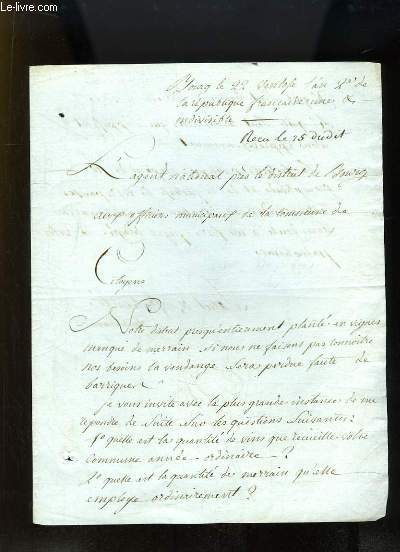 Bourg le 22 Ventose l'an 2e de
la république française une &
indivisible
Recu le 25 dudit
L'agent national près le district de Bourg
aux officiers municipaux de la Commune de
Citoyens
Notre district presqu'entierement planté en vignes
manque de merrain. Si nous ne faisons pas connoitre
nos besoins la vendange sera perdue faute de
barriques
je vous invite avec la plus grande instance de me
repondre de suite sur les questions suivantes:
1° quelle est la quantité de vins que recueille votre
commune année ordinaire ?
2° quelle est la quantité de merrain qu'elle
employe ordinairement ?